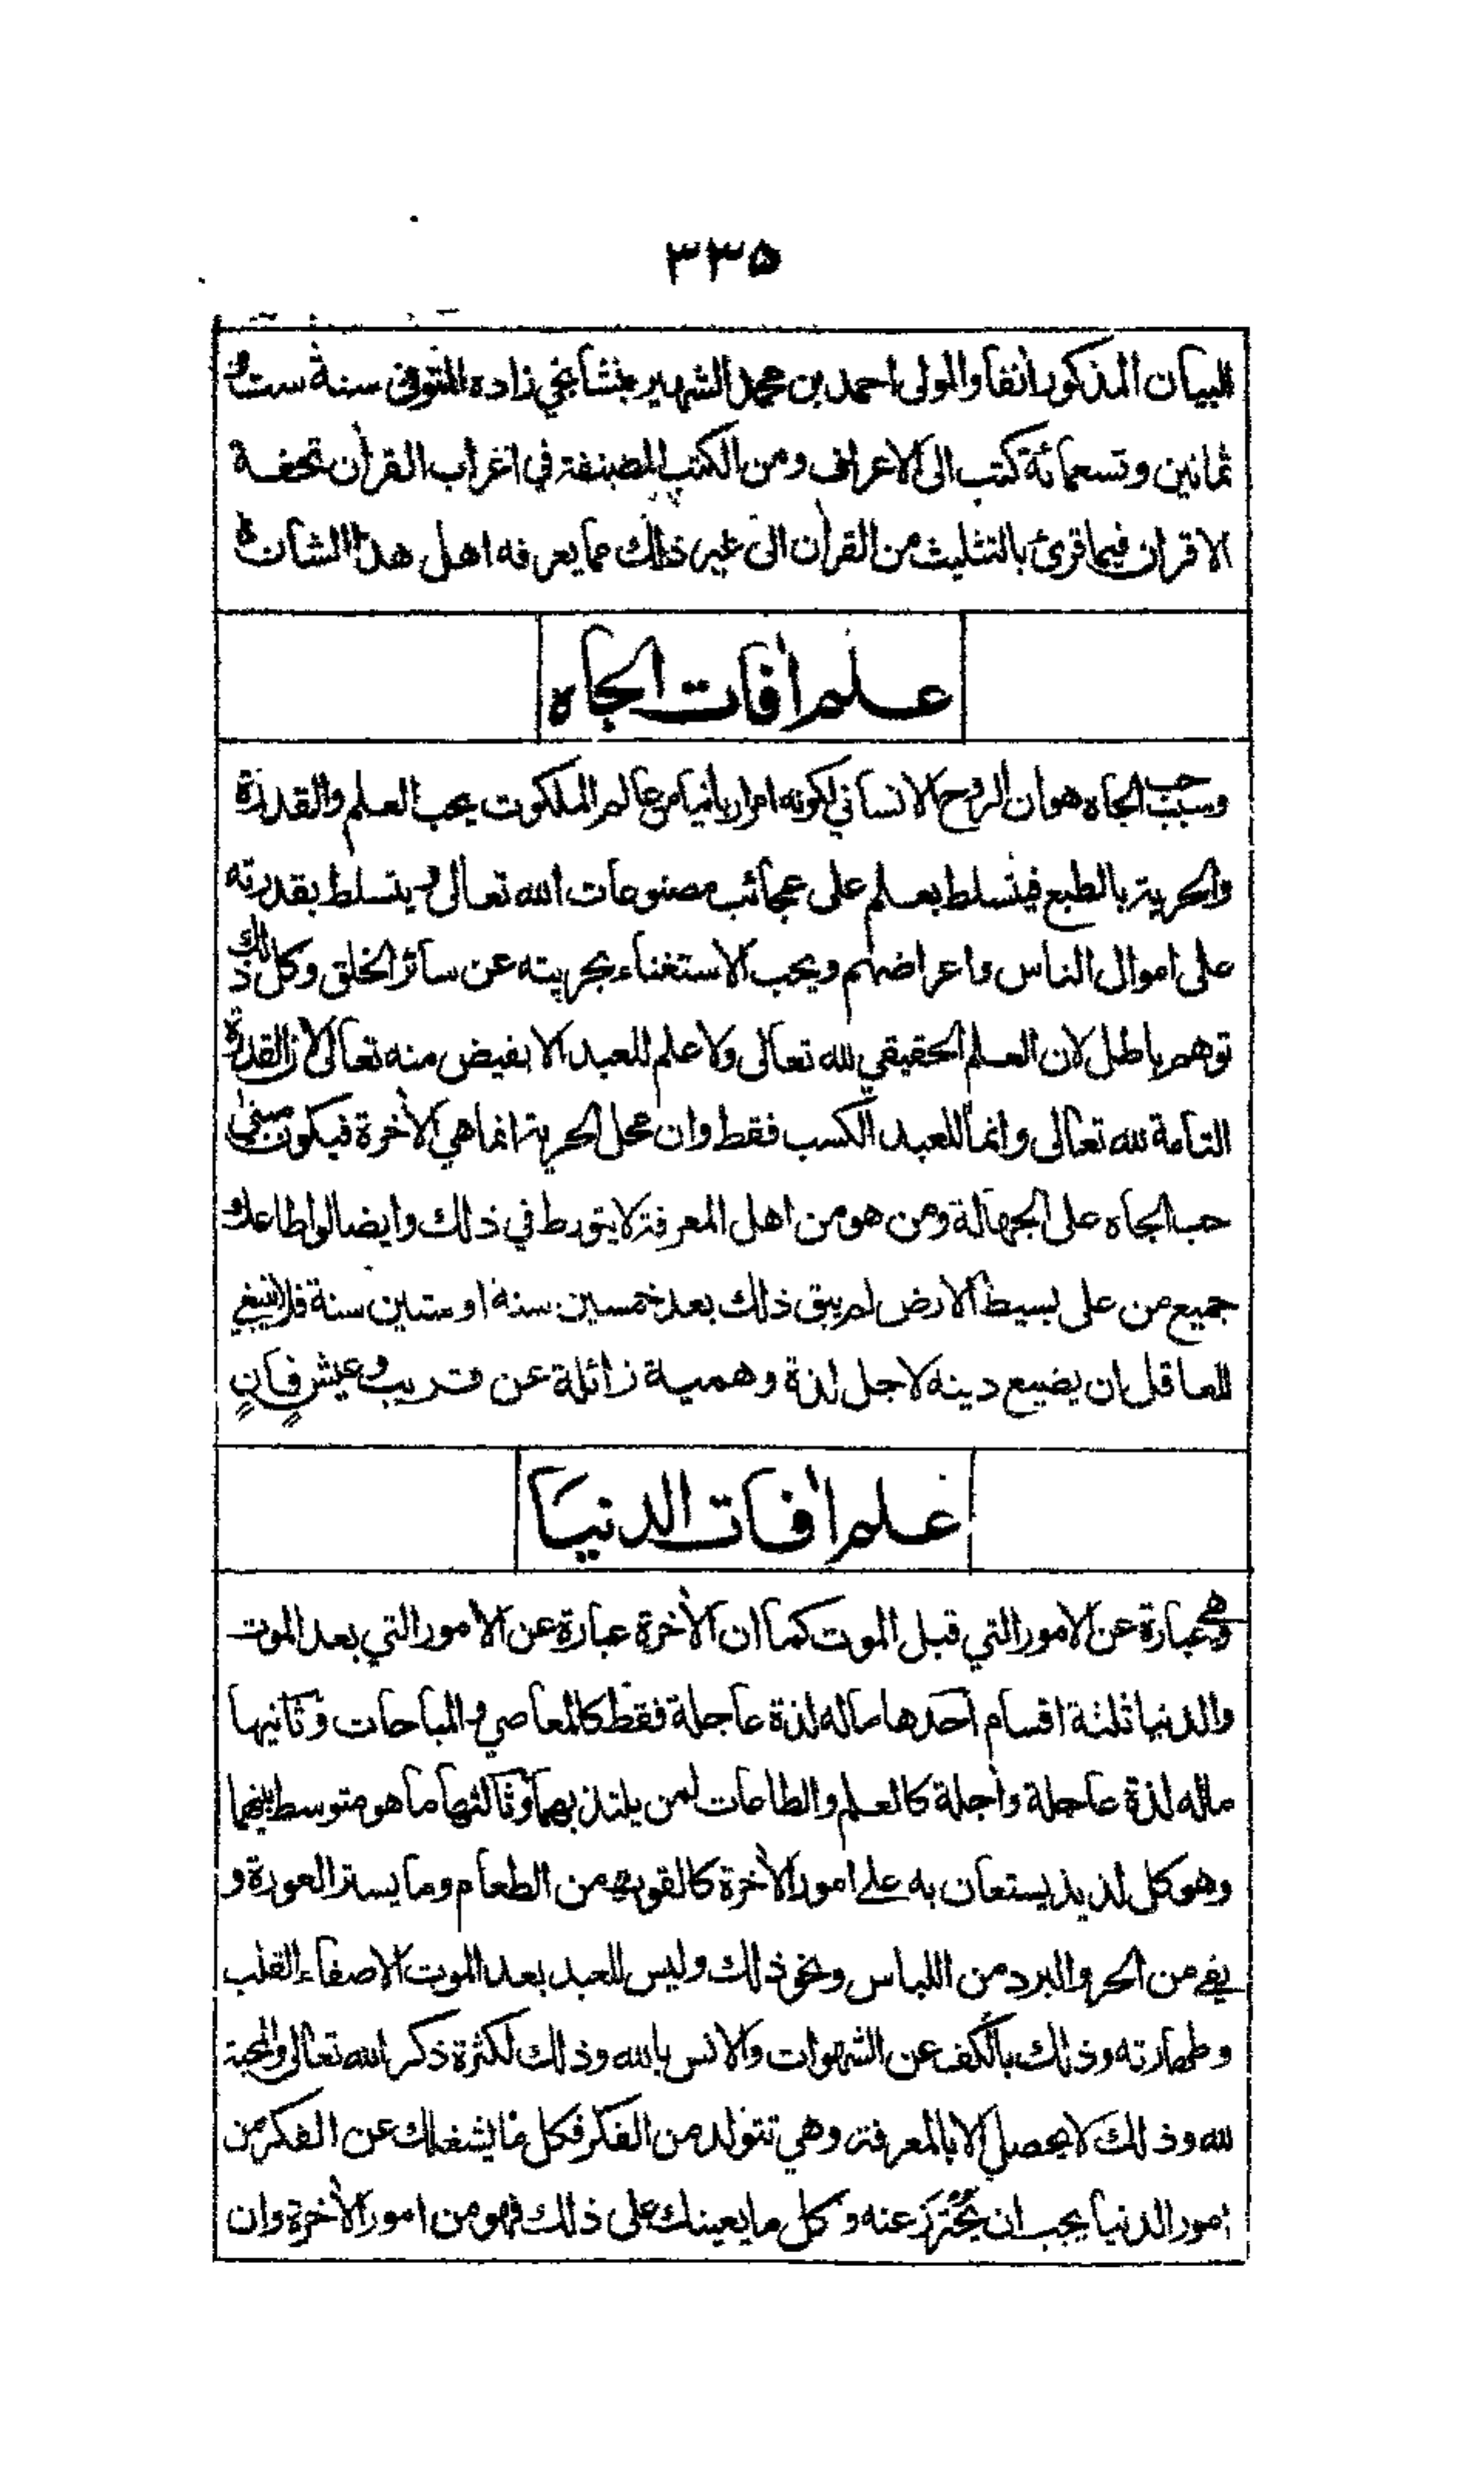 ٣٣٥
البيان المذكور انفا والمولى احمد بن محمد الشهير بنشانجي زاده المتوفى سنة ست و
ثمانين وتسعمائة كتب الى الاعراف ومن الكتب المصنفة في اغراب القرآن تحفة
الاقران فيما قرئ بالتثليث من القرآن الى غير ذلك مما يعرفه اهل هذا الشان
علم آفات الجاه
وسبب حب الجاه هو ان الروح الانساني لكونه امرا ربانيا من عالم الملكوت يحب العلم والقدرة
والحرية بالطبع فيتسلط بعلم على عجائب مصنوعات الله تعالى ويتسلط بقدرته
على اموال الناس واعراضهم ويحب الاستغناء بحريته عن سائر الخلق وكل ذلك
توهم باطل لان العلم الحقيقي لله تعالى ولا علم للعبد الا بفيض منه تعالى لان القدرة
التامة لله تعالى وانما للعبد الكسب فقط وان محل الحرية انما هي الآخرة فيكون مبنى
حب الجاه على الجهالة ومن هو من اهل المعرفة لا يتورط في ذلك وايضا لو اطاعك
جميع من على بسيط الارض لم يبق ذلك بعد خمسين سنة او ستين سنة فلا ينبغي
للعاقل ان يضيع دينه لاجل لذة وهمية زائلة عن قريب وعيش فانٍ
علم آفات الدنيا
وهي عبارة عن الامور التي قبل الموت كما ان الآخرة عبارة عن الامور التي بعد الموت
والدنيا ثلثة اقسام احدها ماله لذة عاجلة فقط كالمعاصي والمباحات وثانيها
ماله لذة عاجلة وآجلة كالعلم والطاعات لمن يلتذ بهما وثالثها ما هو متوسط بينهما
وهو كل لذيذ يستعان به على امور الآخرة كالقوت من الطعام وما يستر العورة و
يقي من الحر والبرد من اللباس ونحو ذلك وليس للعبد بعد الموت الا صفاء القلب
وطهارته وذلك بالكف عن الشهوات والانس بالله وذلك لكثرة ذكر الله تعالى والمحبة
لله وذلك لا يحصل الا بالمعرفة وهي تتولد من الفكر فكل ما يشغلك عن الفكر من
امور الدنيا يجب ان تحترز عنه وكل ما يعينك على ذلك فهو من امور الآخرة وان